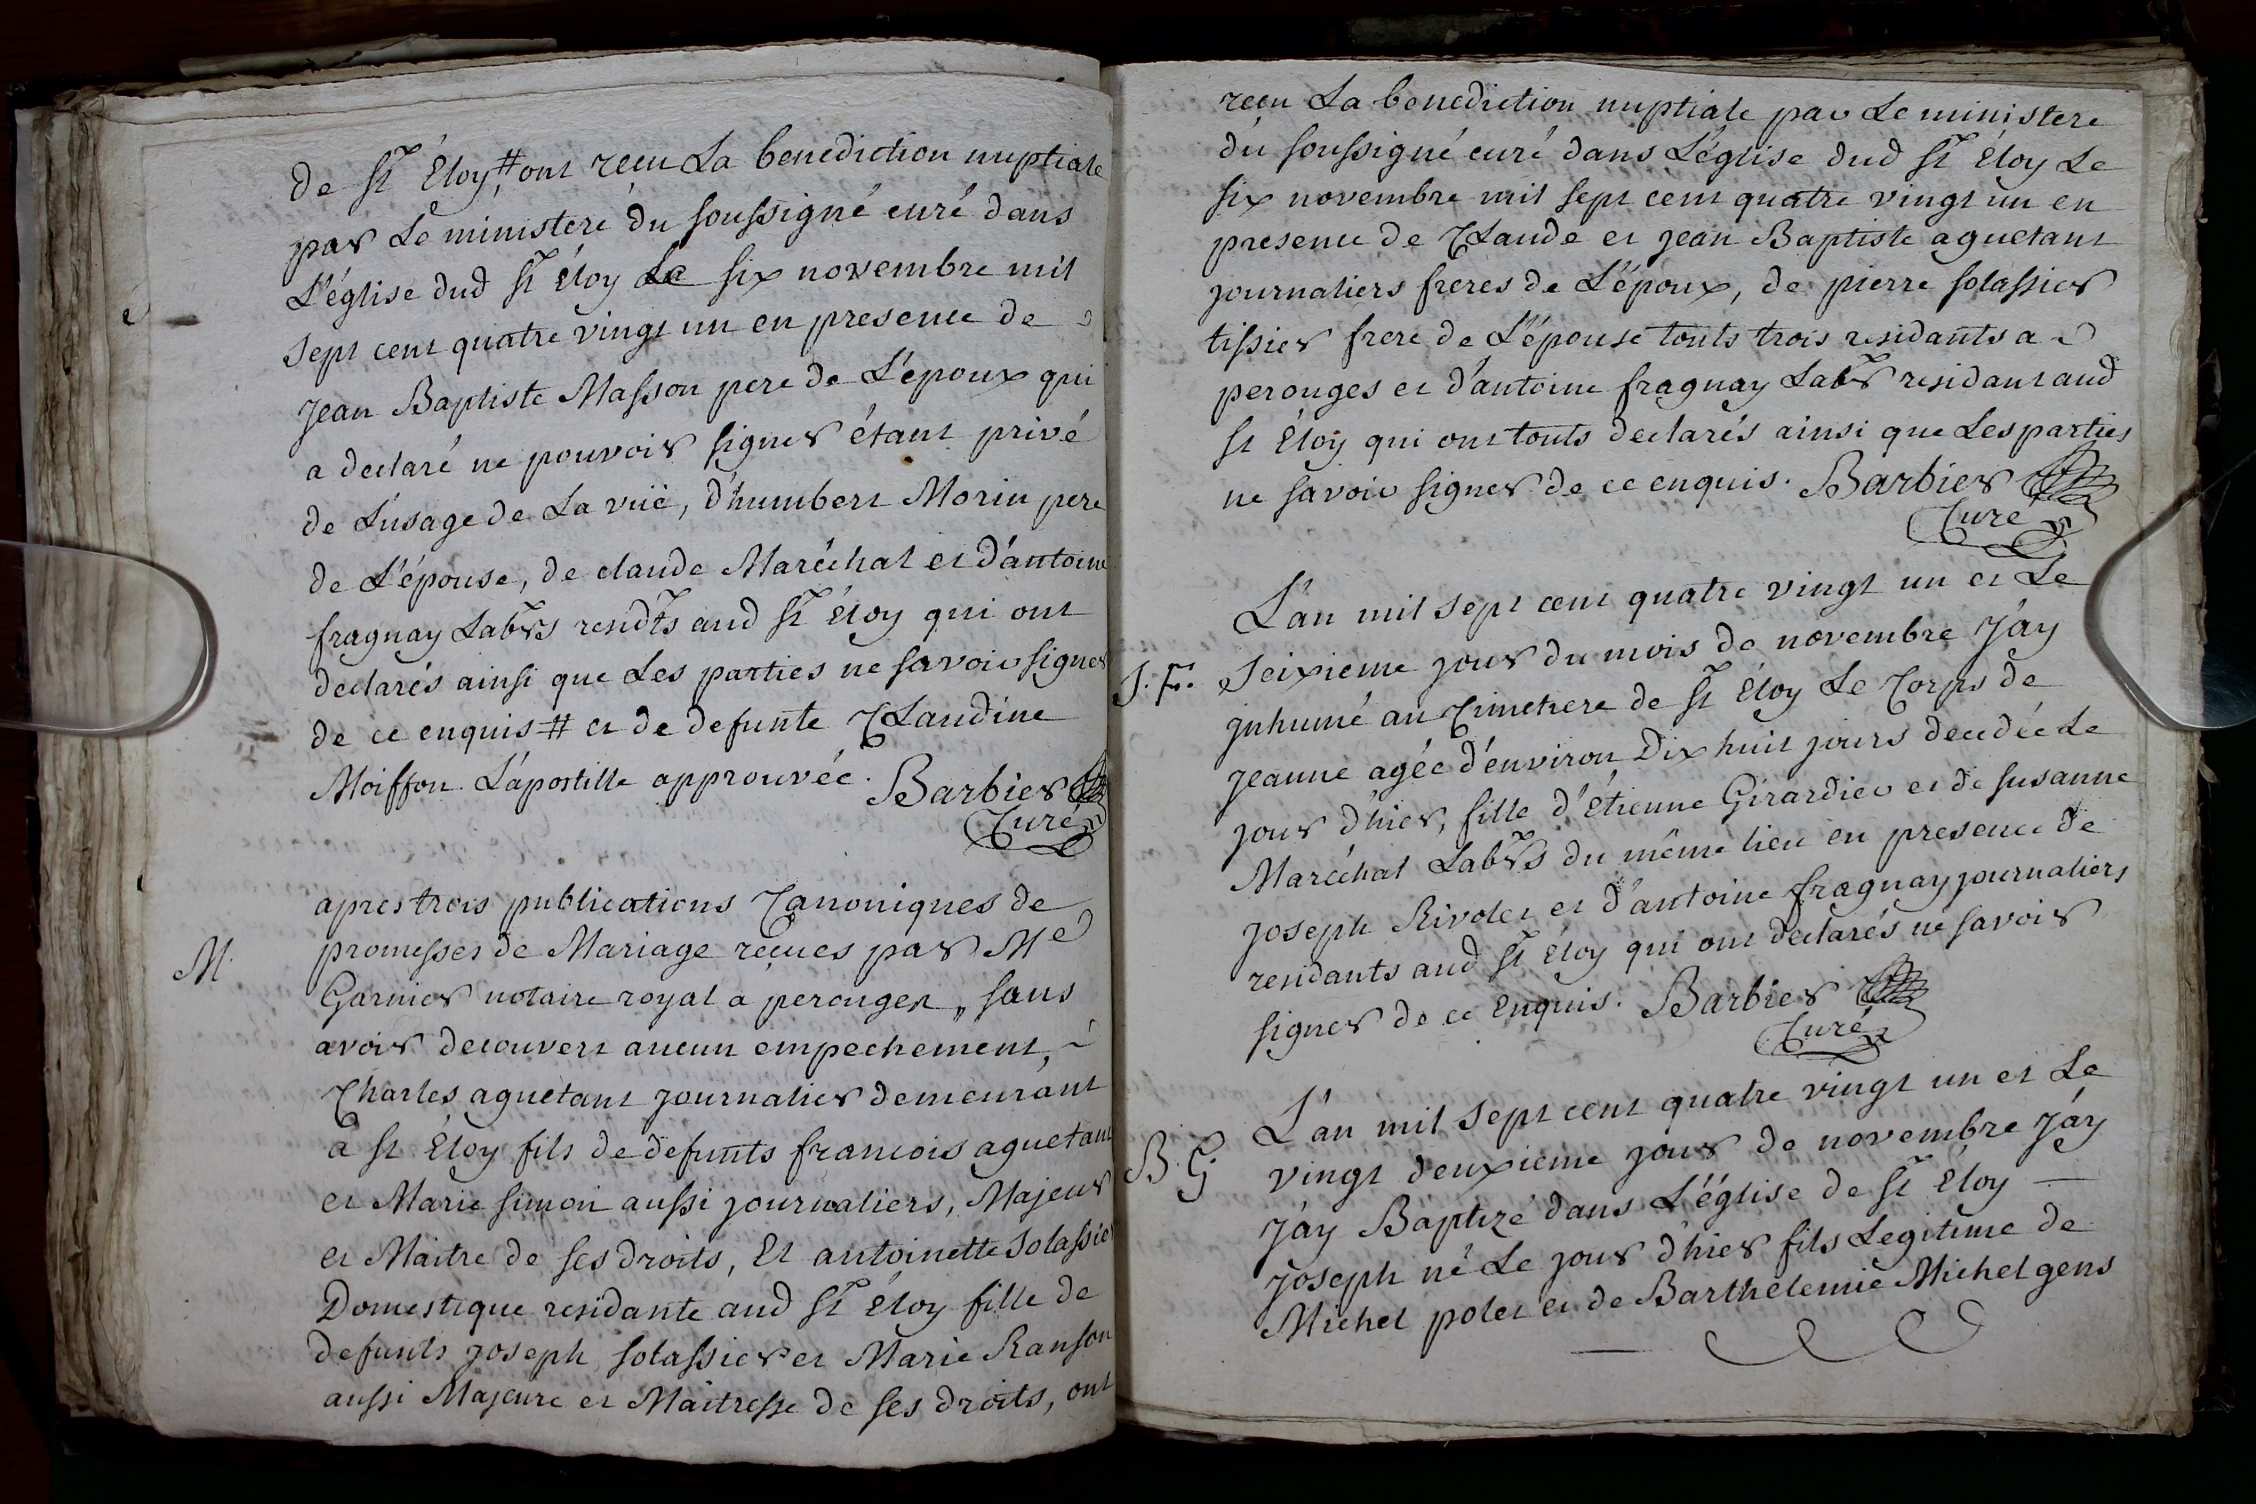 de St Éloy # ont reçu La benediction nuptiale
par Le ministere du soussigné curé dans
L'église dud St Éloy Le six novembre mil
sept cent quatre vingt un en presence de
Jean Baptiste Masson pere de L'époux qui
a declaré ne pouvoir signer étant privé
de L'usage de La vüe, d'humbert Morin pere
de L'épouse, de claude Maréchal et d'antoine
fragnay Labrs residts aud St Éloy qui ont
declarés ainsi que Les parties ne savoir signer
de ce enquis # et de defunte Claudine
Moiffon. L'apostille approuvée. Barbier
Curé
M.
apres trois publications Canoniques de
promesses de Mariage reçues par Me
Garnier notaire royal a perouges, sans
avoir decouvert aucun empechement,
Charles aguetant journalier demeurant
a St Éloy fils de defunts francois aguetant
et Marie simon aussi journaliers, Majeur
et Maitre de ses droits, Et antoinette Solassier
Domestique residante aud St Éloy fille de
defunts joseph solassier et Marie Ranson
aussi Majeure et Maitresse de ses droits, ont
reçu La benediction nuptiale par Le ministere
du soussigné curé dans L'église dud St Éloy Le
six novembre mil sept cent quatre vingt un en
presence de Claude et jean Baptiste aguetant
journaliers freres de L'époux, de pierre solassier
tissier frere de L'épouse touts trois residants a
perouges et d'antoine fragnay Labr residant aud
St Éloy qui ont touts declarés ainsi que Les parties
ne savoir signer de ce enquis. Barbier
Curé
L'an mil sept cent quatre vingt un et Le
S. F. seixieme jour du mois de novembre J'ay
inhumé au Cimetiere de St Éloy Le Corps de
jeanne agée d'environ Dix huit jours decedée Le
jour d'hier, fille d'Étienne Girardier et de susanne
Maréchal Labrs du même lieu en presence de
joseph Rivolet et d'antoine fragnay journaliers
residants aud St Éloy qui ont declarés ne savoir
signer de ce enquis. Barbier
Curé
L'an mil sept cent quatre vingt un et Le
B. G vingt deuxieme jour de novembre J'ay
J'ay Baptizé dans L'église de St Éloy
joseph né Le jour d'hier fils Legitime de
Michel polet et de Barthelemie Michel gens